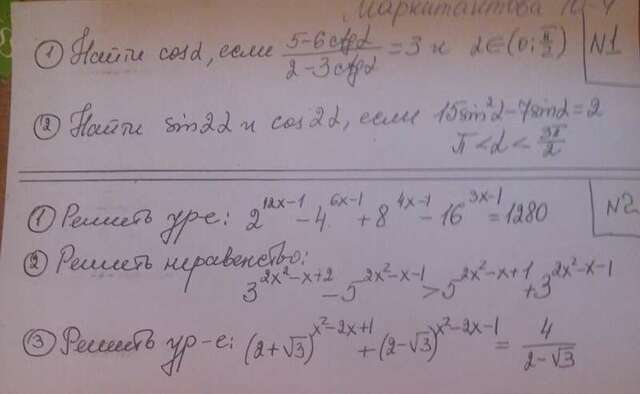 Маркитантова
① Найти cosα, если (5-6ctgα)/(2-3ctgα) = 3 и α∈(0; π/2) N1
② Найти sin2α и cos2α, если 15sin²α-7sinα=2
π<α<3π/2
① Решить ур-е: 2^(12x-1) - 4^(6x-1) + 8^(4x-1) - 16^(3x-1) = 1280 N2
② Решить неравенство:
3^(2x²-x+2) - 5^(2x²-x-1) > 5^(2x²-x+1) + 3^(2x²-x-1)
③ Решить ур-е: (2+√3)^(x²-2x+1) + (2-√3)^(x²-2x-1) = 4/(2-√3)